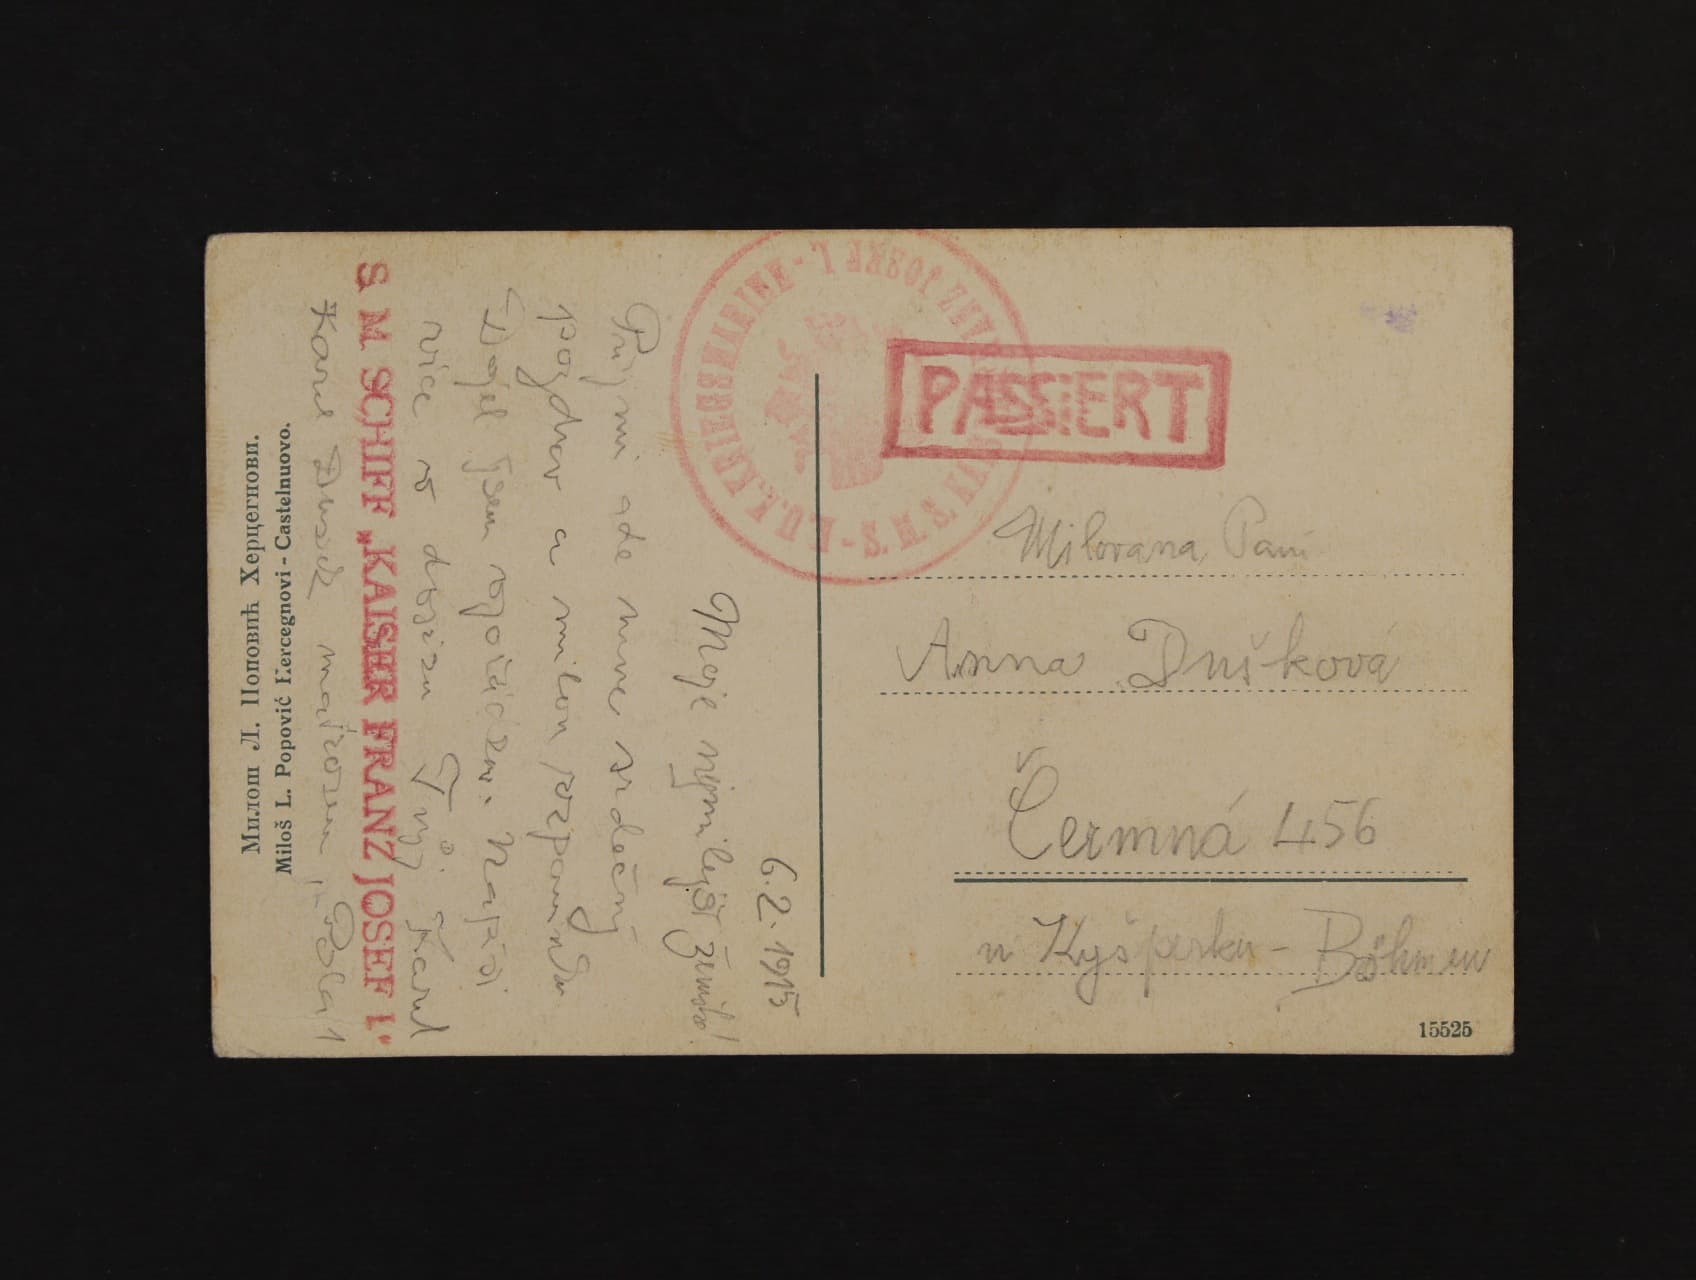 6.2.1915
Moje nejmilejší ženuško!
Přijmi ode mne srdečný
pozdrav a milou vzpomínku
Došel jsem v pořádku. Napíši
více v dopisu Tvůj Karel
S. M. SCHIFF „KAISER FRANZ JOSEF I."
Karel Dušek Pola
Милош Л. Поповић Херцегнови.
Miloš L. Popović Hercegnovi - Castelnuovo.
K.U.K. KRIEGSMARINE - S.M.S. KAISER FRANZ JOSEF I.
PASSiERT
Milovaná Paní
Anna Dušková
Čermná 456
u Kyšperku - Böhmen
15525